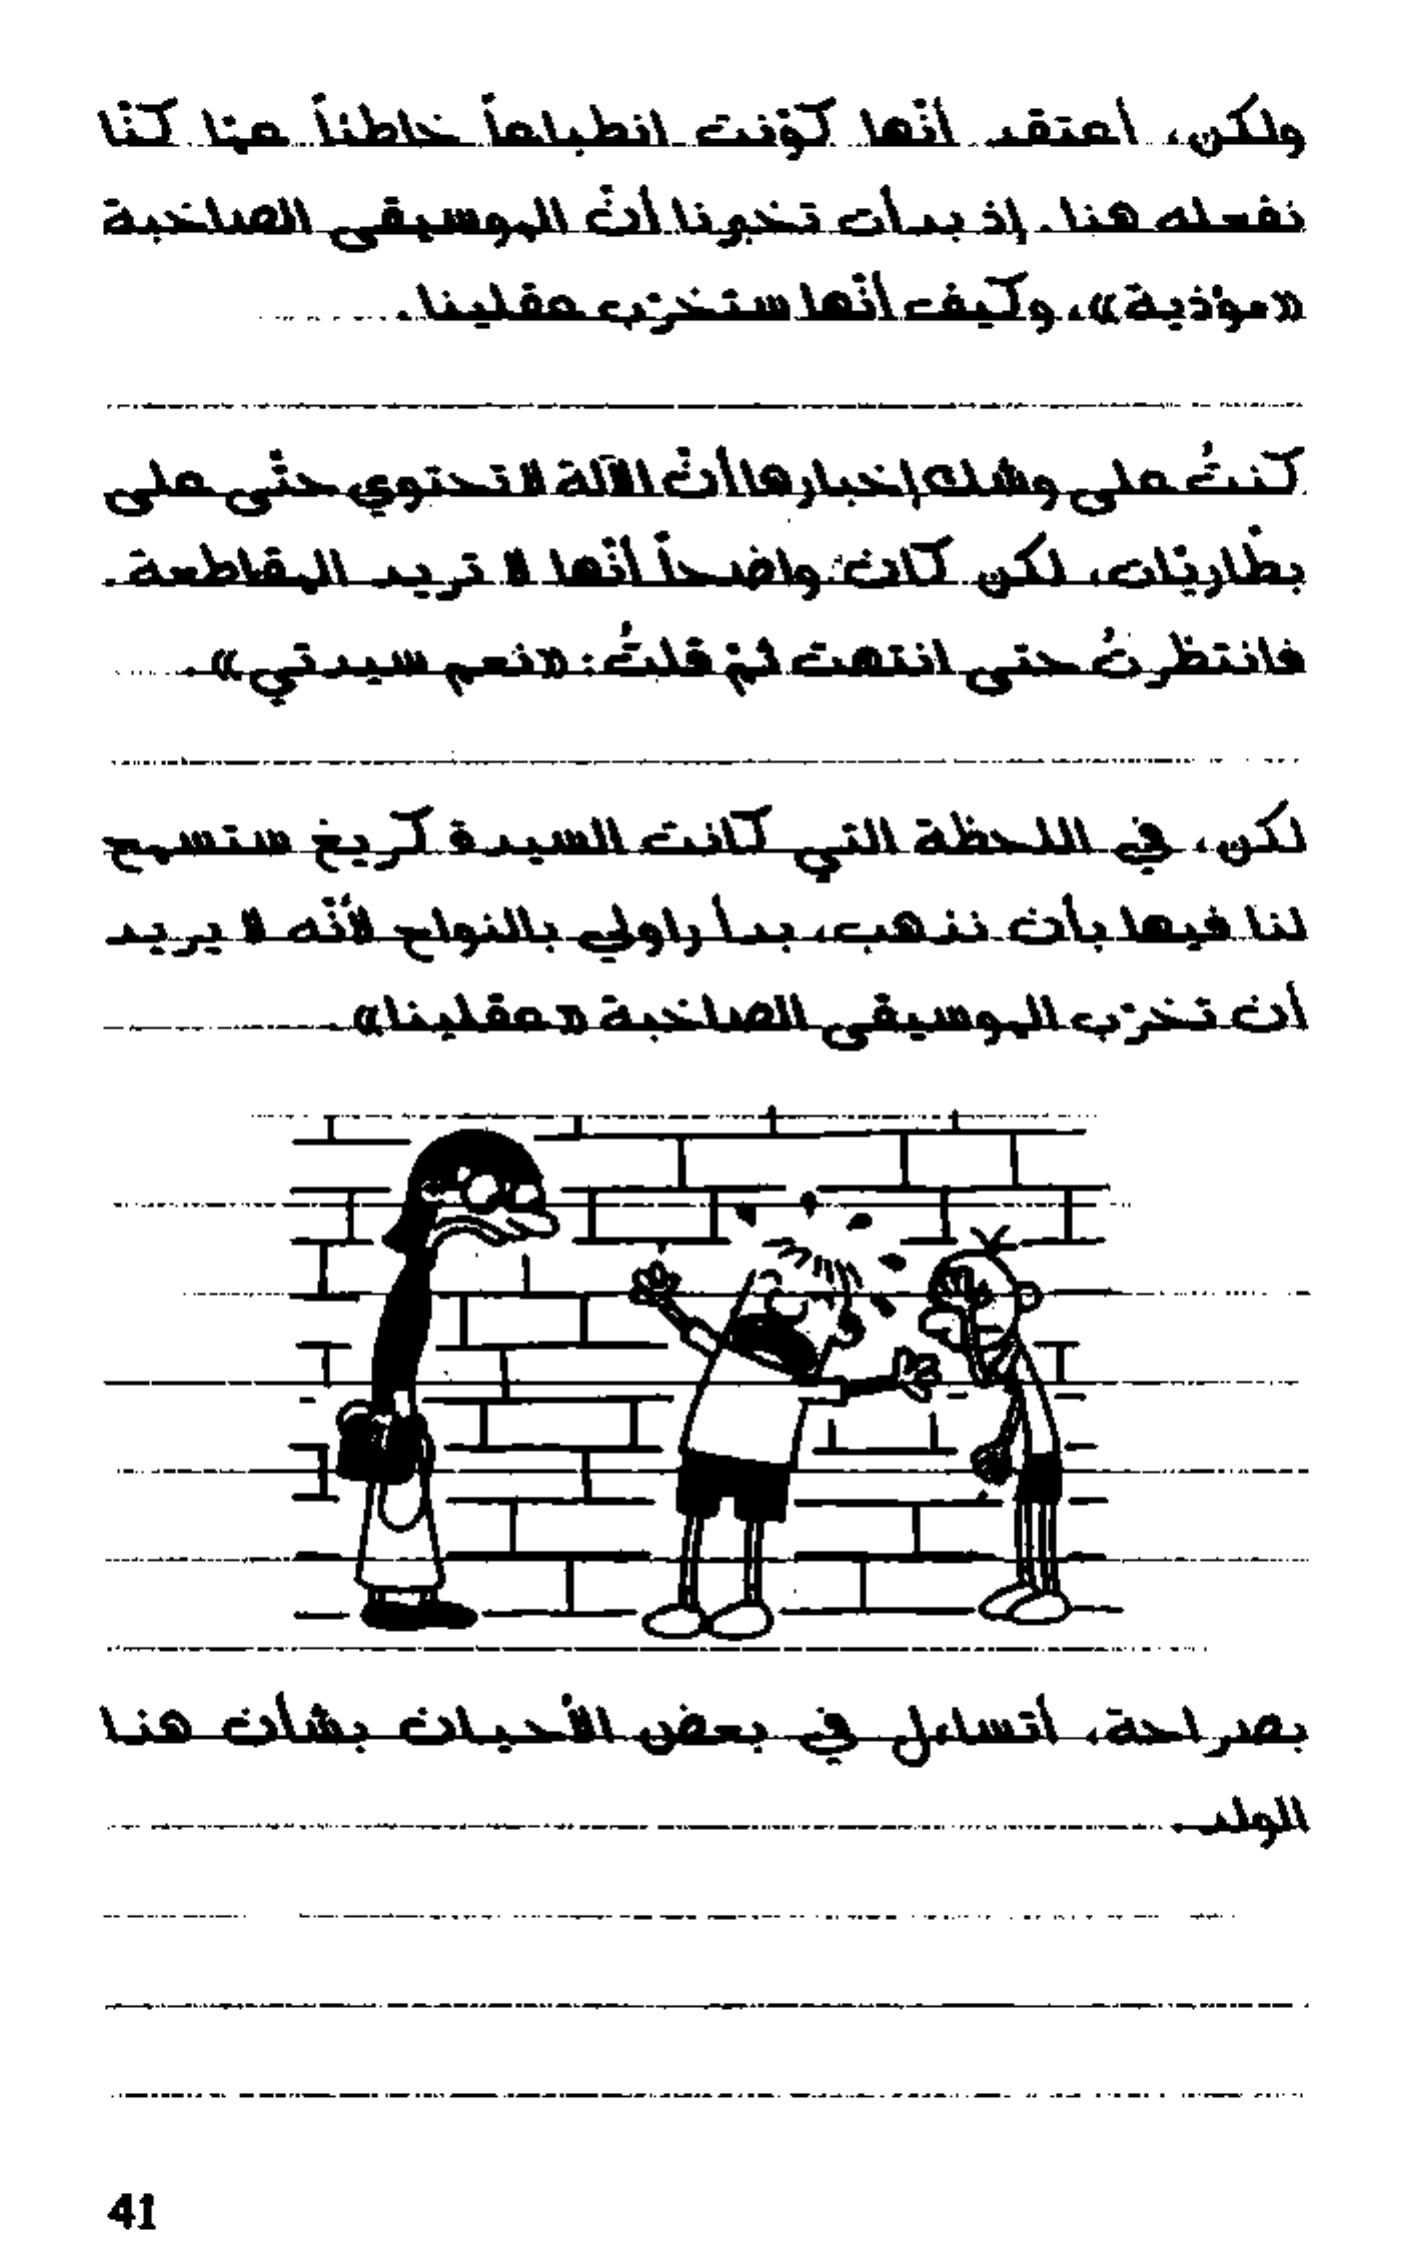 ولكن، أعتقد أنّها كوّنت انطباعاً خاطئاً عمّا كنّا
نفعله هنا. إذ بدأت تخبرنا أنّ الموسيقى الصاخبة
«مؤذية»، وكيف أنّها ستخرّب عقلينا.
كنتُ على وشك إخبارها أنّ الآلة لا تحتوي حتّى على
بطّاريّات، لكن كان واضحاً أنّها لا تريد المقاطعة.
فانتظرتُ حتى انتهت ثمّ قلتُ: «نعم سيدتي».
لكن، في اللحظة التي كانت السيدة كريغ ستسمح
لنا فيها بأن نذهب، بدأ راولي بالنواح لأنّه لا يريد
أن تخرّب الموسيقى الصاخبة «عقلينا».
بصراحة، أتساءل في بعض الأحيان بشأن هذا
الولد.
41